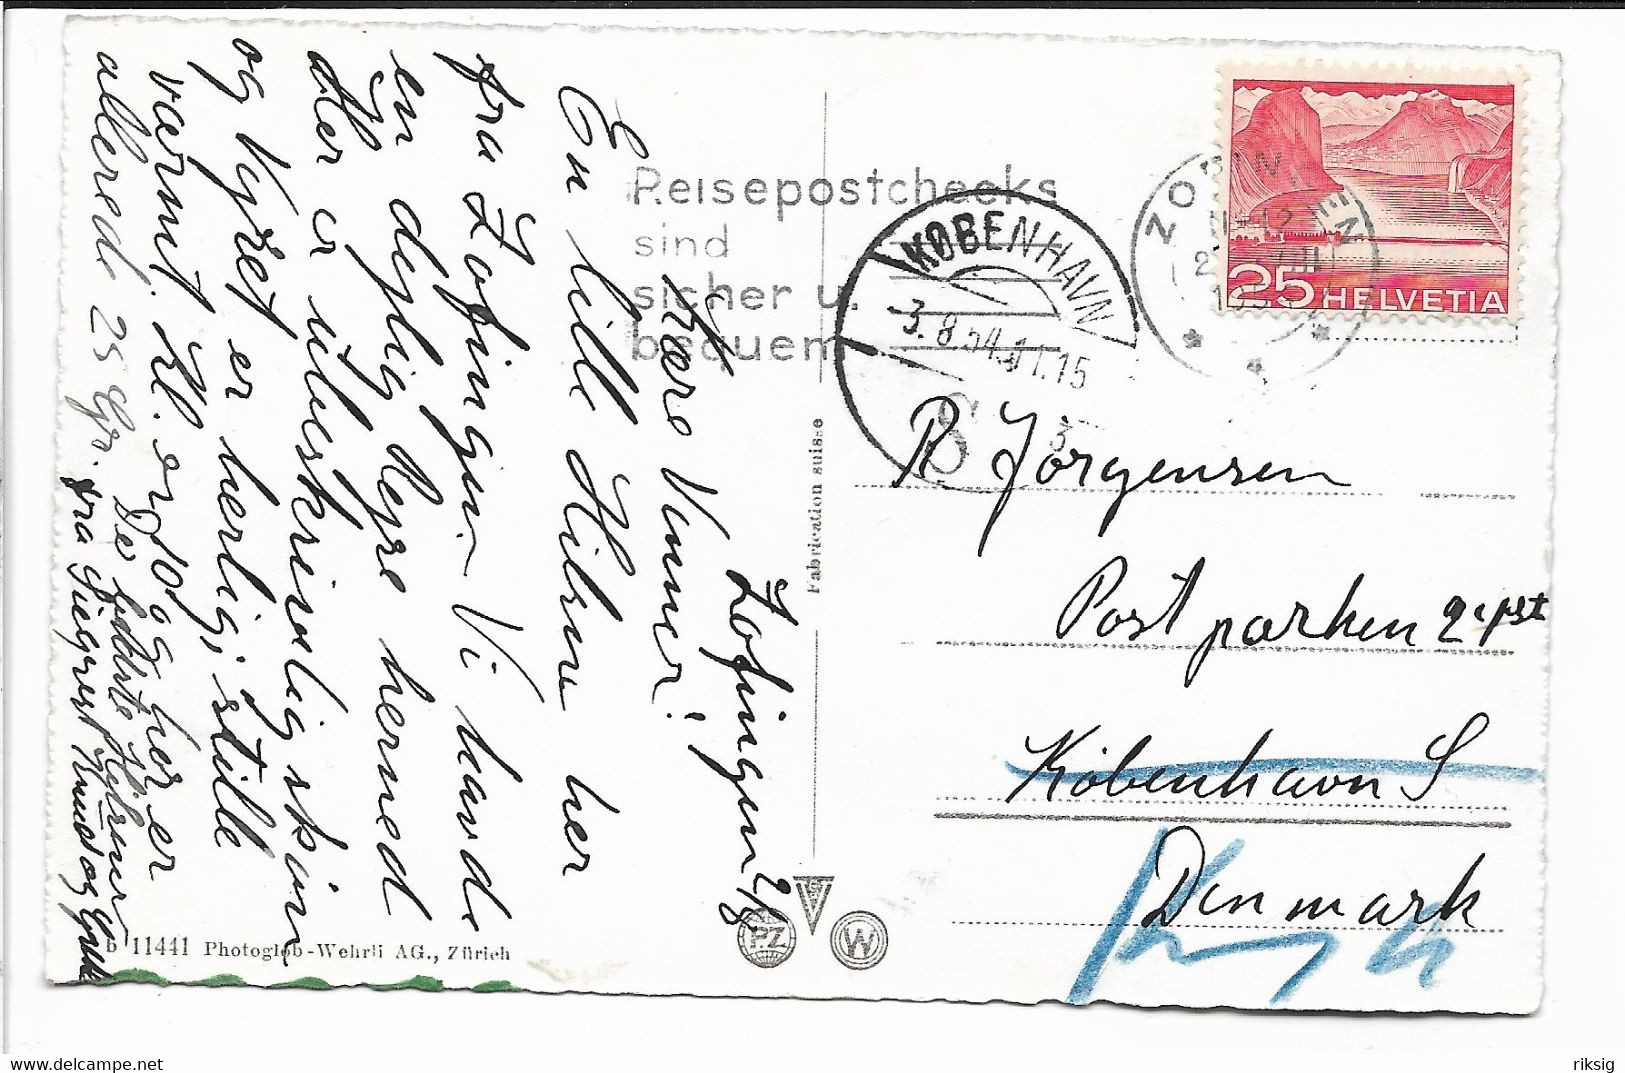 Zofingen 2/8
Kære Venner!
En lille Hilsen her
fra Zofingen. Vi havde
en dejlig Rejse herned
Her er ubeskrivelig skøn
og Vejret er herlig; stille
varmt. Kl. er 10 og her er
allerede 25 Gr.
De bedste Hilsner
fra Siegrest Knud og
Fabrication suisse
b 11441 Photoglob-Wehrli AG., Zürich
PZ
W
Reisepostchecks
sind
sicher u.
bequem
KØBENHAVN
3.8.54.11.15
ZOFINGEN
25 HELVETIA
R. Jørgensen
Postparken 2.
København S
Denmark
riksig